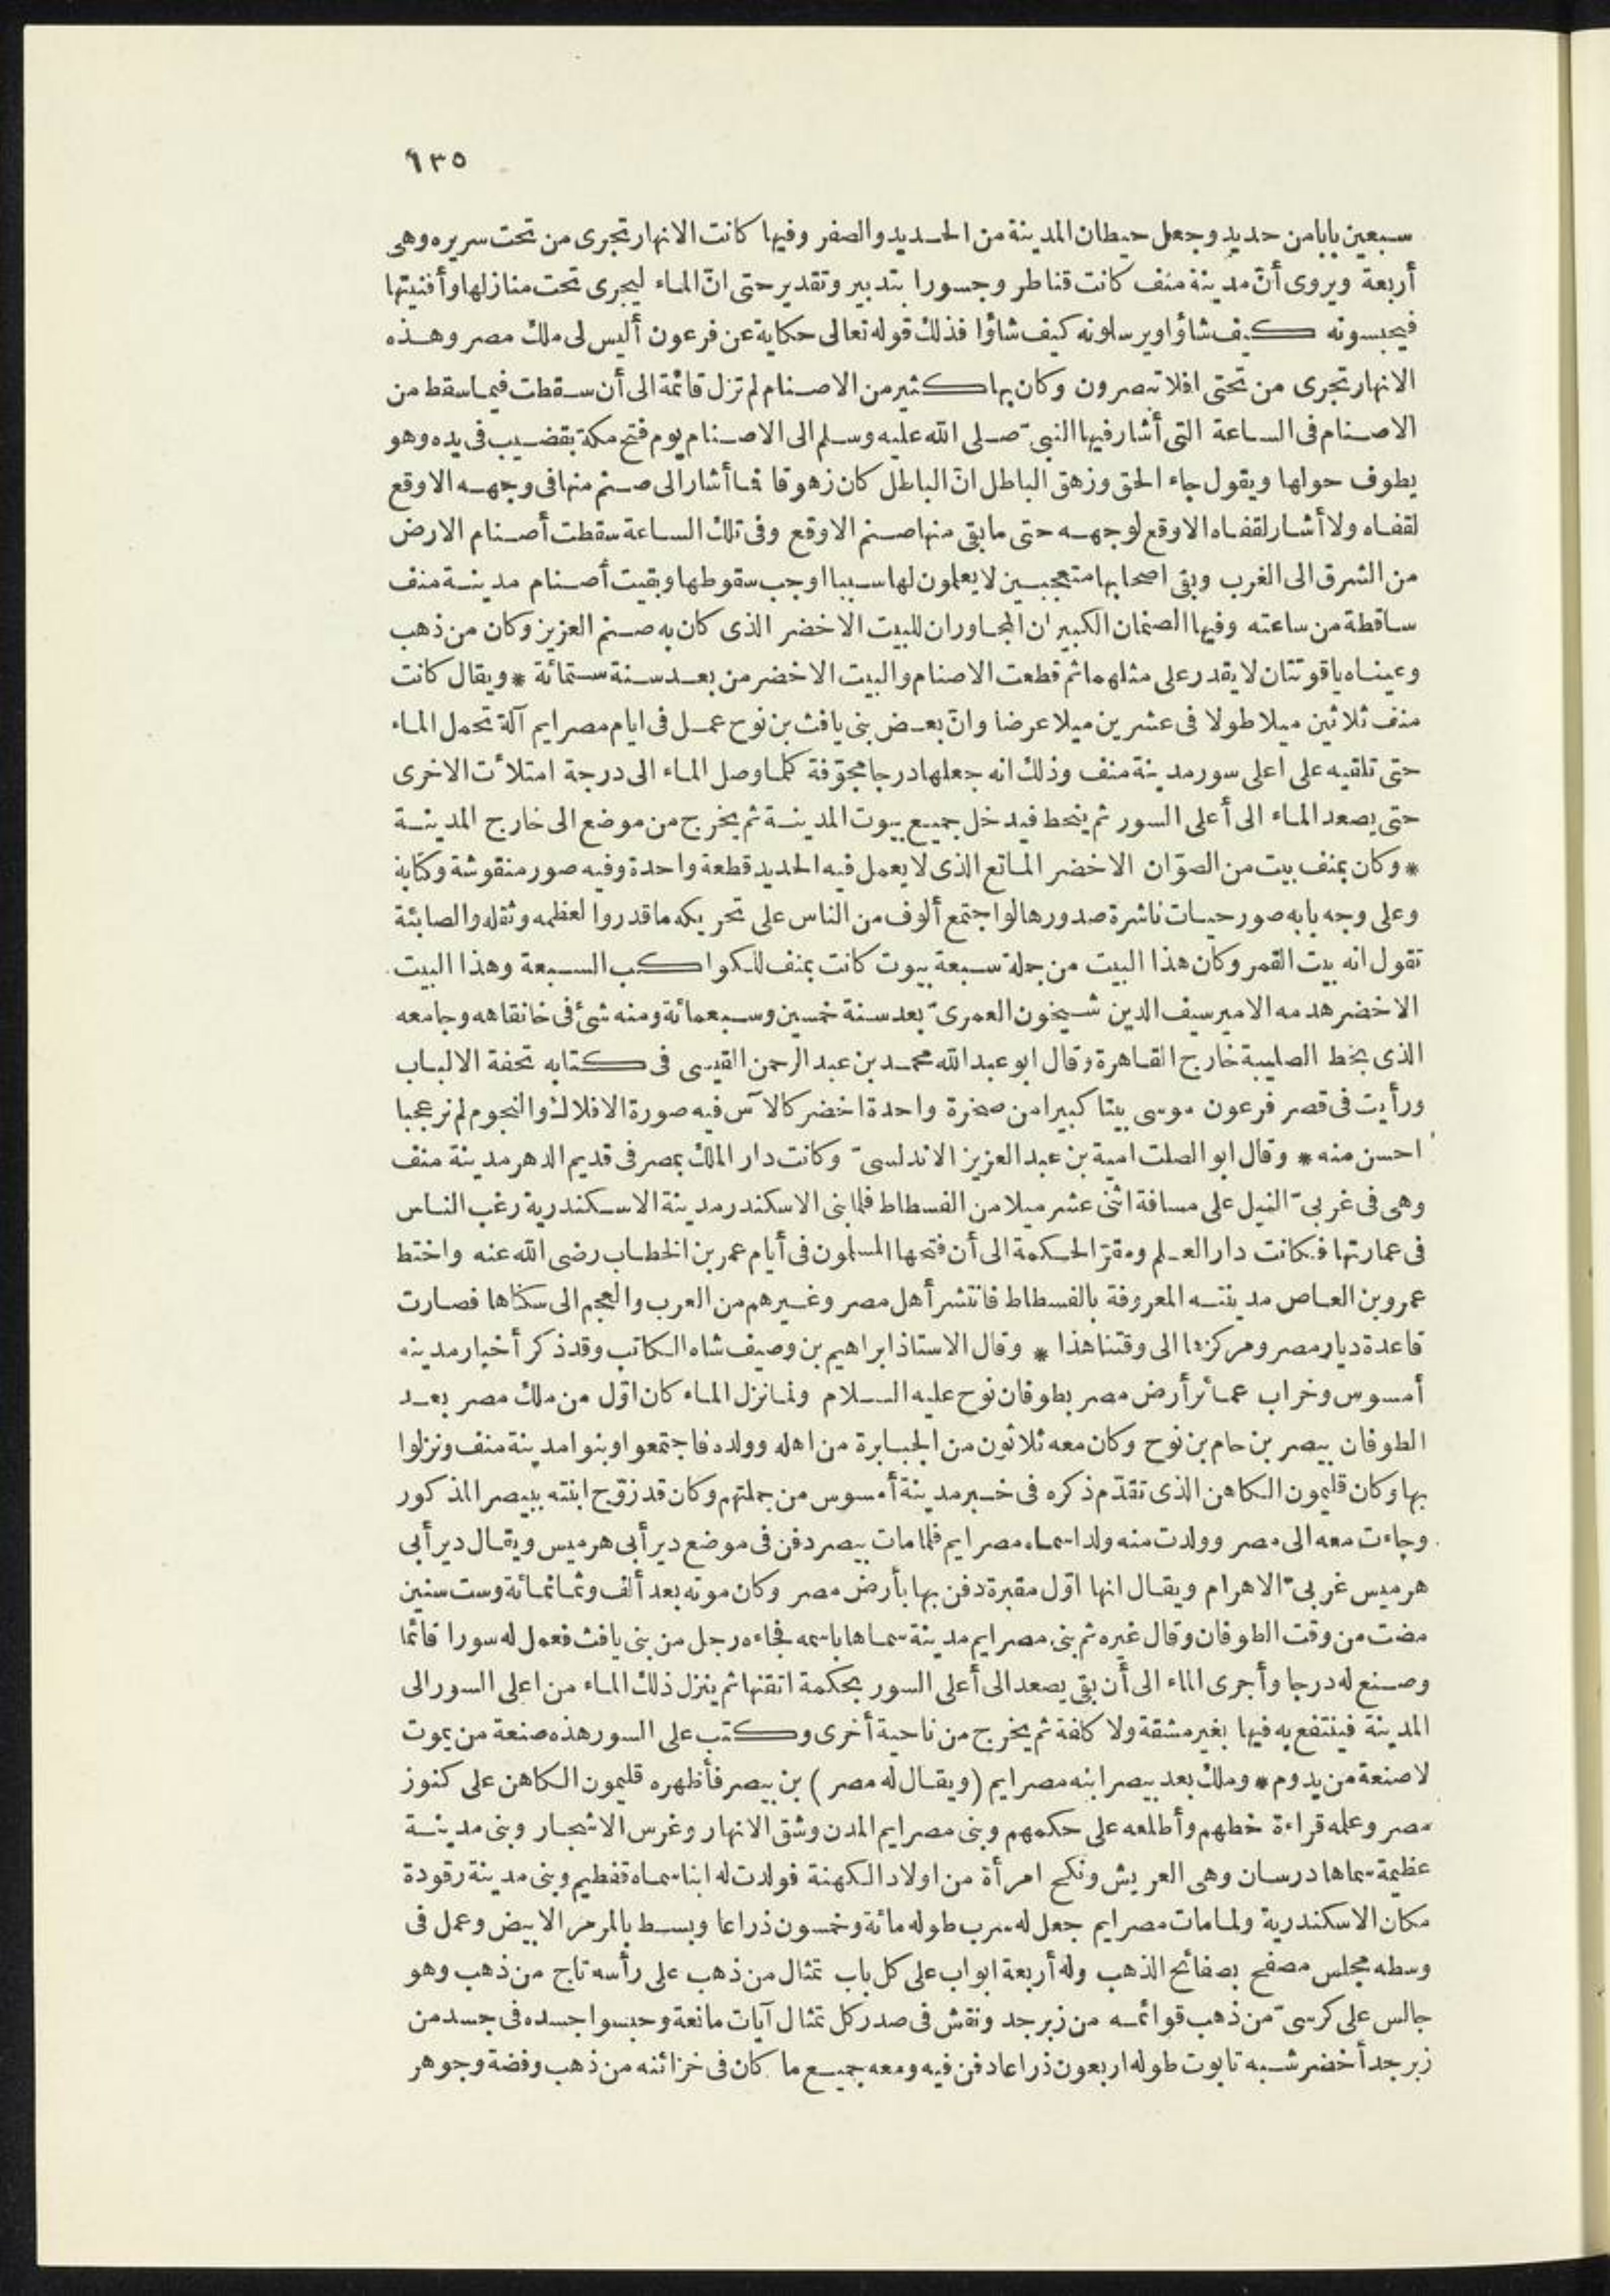 ١٣٥
سبعين بابا من حديد وجعل حيطان المدينة من الحديد والصفر وفيها كانت الانهار تجرى من تحت سريره وهى
أربعة ويروى أنّ مدينة منف كانت قناطر وجسورا بتدبير وتقدير حتى انّ الماء ليجرى تحت منازلها وأفنيتها
فيحبسونه كيف شاؤا ويرسلونه كيف شاؤا فذلك قوله تعالى حكاية عن فرعون أليس لى ملك مصر وهذه
الانهار تجرى من تحتى افلا تبصرون وكان بها كثير من الاصنام لم تزل قائمة الى أن سقطت فيما سقط من
الاصنام فى الساعة التى أشار فيها النبىّ صلى الله عليه وسلم الى الاصنام يوم فتح مكة بقضيب فى يده وهو
يطوف حولها ويقول جاء الحق وزهق الباطل انّ الباطل كان زهوقا فما أشار الى صنم منها فى وجهه الا وقع
لقفاه ولا أشار لقفاه الا وقع لوجهه حتى ما بقى منها صنم الا وقع وفى تلك الساعة سقطت أصنام الارض
من الشرق الى الغرب وبقى اصحابها متعجبين لا يعلمون لها سببا اوجب سقوطها وبقيت أصنام مدينة منف
ساقطة من ساعته وفيها الصنمان الكبيران المجاوران للبيت الاخضر الذى كان به صنم العزيز وكان من ذهب
وعيناه ياقوتتان لا يقدر على مثلهما ثم قطعت الاصنام والبيت الاخضر من بعد سنة ستمائة * ويقال كانت
منف ثلاثين ميلا طولا فى عشرين ميلا عرضا وانّ بعض بنى يافث بن نوح عمل فى ايام مصرايم آلة تحمل الماء
حتى تلقيه على اعلى سور مدينة منف وذلك انه جعلها درجا مجوّفة كلما وصل الماء الى درجة امتلأت الاخرى
حتى يصعد الماء الى أعلى السور ثم ينحط فيدخل جميع بيوت المدينة ثم يخرج من موضع الى خارج المدينة
* وكان بمنف بيت من الصوّان الاخضر الماتع الذى لا يعمل فيه الحديد قطعة واحدة وفيه صور منقوشة وكتابة
وعلى وجه بابه صور حيات ناشرة صدورها لو اجتمع ألوف من الناس على تحريكه ما قدروا لعظمه وثقله والصابئة
تقول انه بيت القمر وكان هذا البيت من جملة سبعة بيوت كانت بمنف للكواكب السبعة وهذا البيت
الاخضر هدمه الامير سيف الدين شيخون العمرىّ بعد سنة خمسين وسبعمائة ومنه شئ فى خانقاهه وجامعه
الذى بخط الصليبة خارج القاهرة وقال ابو عبد الله محمد بن عبد الرحمن القيسى فى كتابه تحفة الالباب
ورأيت فى قصر فرعون موسى بيتا كبيرا من صخرة واحدة اخضر كالآس فيه صورة الافلاك والنجوم لم نر عجبا
احسن منه * وقال ابو الصلت امية بن عبد العزيز الاندلسىّ وكانت دار الملك بمصر فى قديم الدهر مدينة منف
وهى فى غربىّ النيل على مسافة اثنى عشر ميلا من الفسطاط فلما بنى الاسكندر مدينة الاسكندرية رغب الناس
فى عمارتها فكانت دار العلم ومقرّ الحكمة الى أن فتحها المسلمون فى أيام عمر بن الخطاب رضى الله عنه واختط
عمرو بن العاص مدينته المعروفة بالفسطاط فانتشر أهل مصر وغيرهم من العرب والعجم الى سكناها فصارت
قاعدة ديار مصر ومركزها الى وقتنا هذا * وقال الاستاذ ابراهيم بن وصيف شاه الكاتب وقد ذكر أخبار مدينة
أمسوس وخراب عمائر أرض مصر بطوفان نوح عليه السلام ولما نزل الماء كان اوّل من ملك مصر بعد
الطوفان بيصر بن حام بن نوح وكان معه ثلاثون من الجبابرة من اهله وولده فاجتمعوا وبنوا مدينة منف ونزلوا
بها وكان قليمون الكاهن الذى تقدّم ذكره فى خبر مدينة أمسوس من جملتهم وكان قد زوّج ابنته ببيصر المذكور
وجاءت معه الى مصر وولدت منه ولدا اسماه مصرايم فلما مات بيصر دفن فى موضع دير أبى هرميس ويقال دير أبى
هرميس غربىّ الاهرام ويقال انها اوّل مقبرة دفن بها بأرض مصر وكان موته بعد ألف وثمانمائة وست سنين
مضت من وقت الطوفان وقال غيره ثم بنى مصرايم مدينة سماها باسمه فجاءه رجل من بنى يافث فعمل له سورا قائما
وصنع له درجا وأجرى الماء الى أن بقى يصعد الى أعلى السور بحكمة اتقنها ثم ينزل ذلك الماء من اعلى السور الى
المدينة فينتفع به فيها بغير مشقة ولا كلفة ثم يخرج من ناحية أخرى وكتب على السور هذه صنعة من يموت
لا صنعة من يدوم * وملك بعد بيصر ابنه مصرايم (ويقال له مصر) بن بيصر فأظهره قليمون الكاهن على كنوز
مصر وعلمه قراءة خطهم وأطلعه على حكمهم وبنى مصرايم المدن وشق الانهار وغرس الاشجار وبنى مدينة
عظيمة سماها درسان وهى العريش ونكح امرأة من اولاد الكهنة فولدت له ابنا سماه قفطيم وبنى مدينة رقودة
مكان الاسكندرية ولما مات مصرايم جعل له سرب طوله مائة وخمسون ذراعا وبسط بالمرمر الابيض وعمل فى
وسطه مجلس مصفح بصفائح الذهب وله أربعة ابواب على كل باب تمثال من ذهب على رأسه تاج من ذهب وهو
جالس على كرسىّ من ذهب قوائمه من زبرجد ونقش فى صدر كل تمثال آيات مانعة وحبسوا جسده فى جسد من
زبرجد أخضر شبه تابوت طوله اربعون ذراعا دفن فيه ومعه جميع ما كان فى خزائنه من ذهب وفضة وجوهر